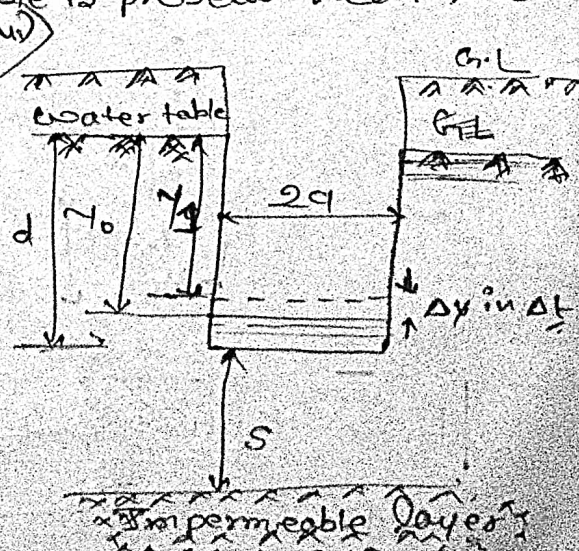 G.L
water table
G.L
d
y₀
y₁
2a
Δy in Δt
S
Impermeable layer